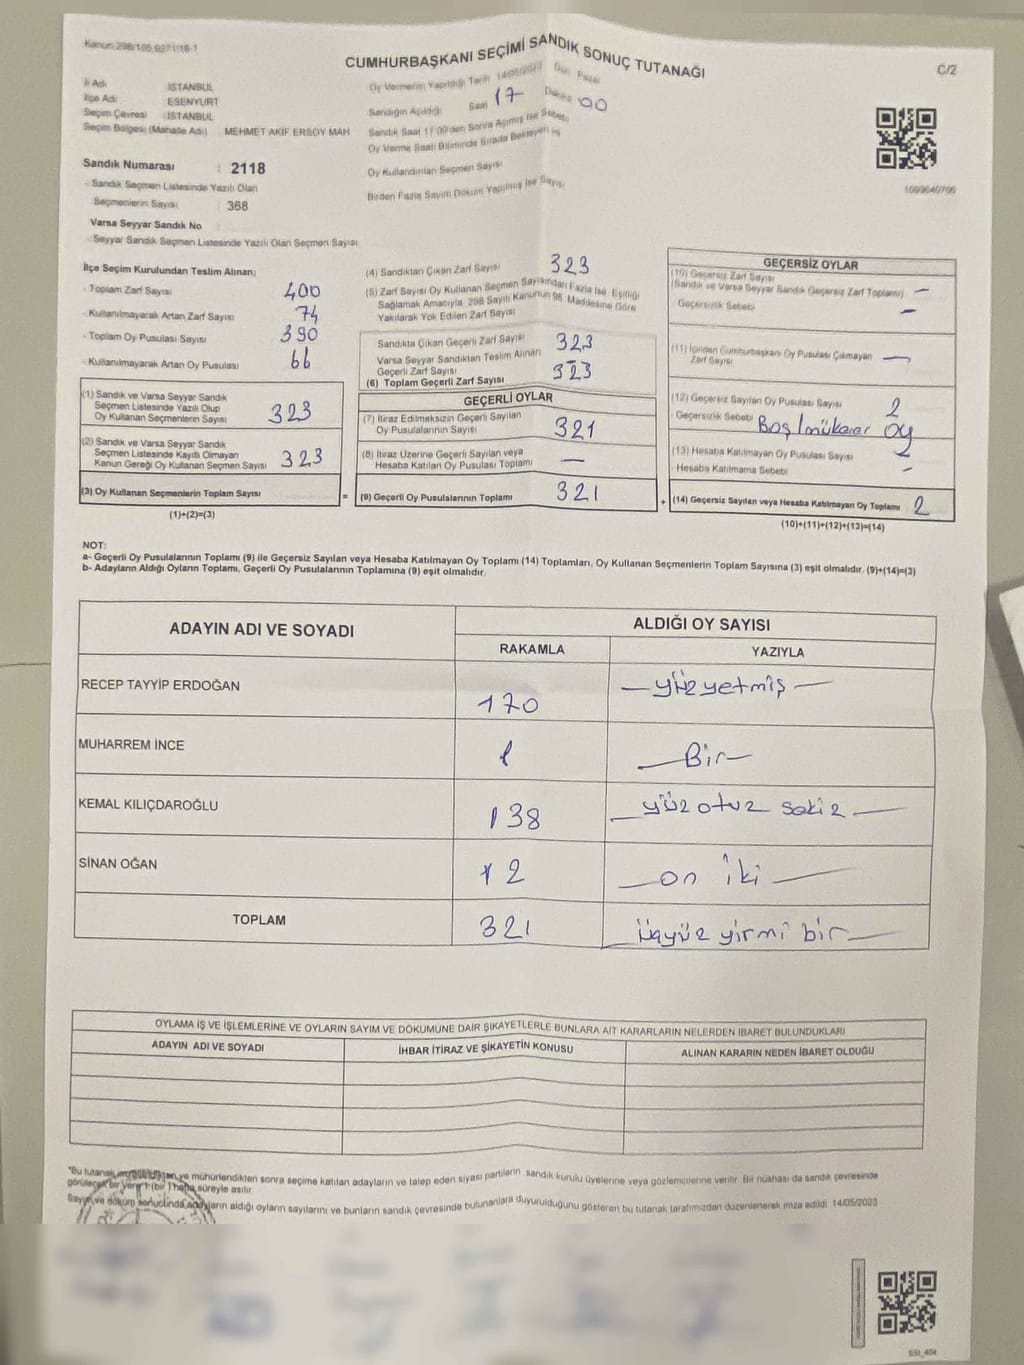 Kanun:298/105,6271/16-1
CUMHURBAŞKANI SEÇİMİ SANDIK SONUÇ TUTANAĞI
C/2
İl Adı İSTANBUL
İlçe Adı ESENYURT
Seçim Çevresi İSTANBUL
Seçim Bölgesi (Mahalle Adı) MEHMET AKİF ERSOY MAH
Oy Vermenin Yapıldığı Tarih 14/05/2023 Gün Pazar
Sandığın Açıldığı Saat 17 Dakika 00
Sandık Saat 17:00'den Sonra Açılmış İse Sebebi
Oy Verme Saati Bitiminde Sırada Bekleyen ve
Oy Kullandırılan Seçmen Sayısı
Birden Fazla Sayım Döküm Yapılmış İse Sayısı
Sandık Numarası : 2118
- Sandık Seçmen Listesinde Yazılı Olan
Seçmenlerin Sayısı : 368
Varsa Seyyar Sandık No
- Seyyar Sandık Seçmen Listesinde Yazılı Olan Seçmen Sayısı
İlçe Seçim Kurulundan Teslim Alınan;
- Toplam Zarf Sayısı 400
- Kullanılmayarak Artan Zarf Sayısı 74
- Toplam Oy Pusulası Sayısı 390
- Kullanılmayarak Artan Oy Pusulası 66
(1) Sandık ve Varsa Seyyar Sandık
Seçmen Listesinde Yazılı Olup
Oy Kullanan Seçmenlerin Sayısı 323
(2) Sandık ve Varsa Seyyar Sandık
Seçmen Listesinde Kayıtlı Olmayan
Kanun Gereği Oy Kullanan Seçmen Sayısı 323
(3) Oy Kullanan Seçmenlerin Toplam Sayısı =
(1)+(2)=(3)
(4) Sandıktan Çıkan Zarf Sayısı 323
(5) Zarf Sayısı Oy Kullanan Seçmen Sayısından Fazla İse, Eşitliği
Sağlamak Amacıyla, 298 Sayılı Kanunun 98. Maddesine Göre
Yakılarak Yok Edilen Zarf Sayısı
Sandıkta Çıkan Geçerli Zarf Sayısı 323
Varsa Seyyar Sandıktan Teslim Alınan
Geçerli Zarf Sayısı 323
(6) Toplam Geçerli Zarf Sayısı
GEÇERLİ OYLAR
(7) İtiraz Edilmeksizin Geçerli Sayılan
Oy Pusulalarının Sayısı 321
(8) İtiraz Üzerine Geçerli Sayılan veya
Hesaba Katılan Oy Pusulası Toplamı —
(9) Geçerli Oy Pusulalarının Toplamı 321 +
GEÇERSİZ OYLAR
(10) Geçersiz Zarf Sayısı
(Sandık ve Varsa Seyyar Sandık Geçersiz Zarf Toplamı) —
- Geçersizlik Sebebi —
(11) İçinden Cumhurbaşkanı Oy Pusulası Çıkmayan
Zarf Sayısı —
(12) Geçersiz Sayılan Oy Pusulası Sayısı 2
- Geçersizlik Sebebi Boş/mükerer oy
(13) Hesaba Katılmayan Oy Pusulası Sayısı
- Hesaba Katılmama Sebebi —
(14) Geçersiz Sayılan veya Hesaba Katılmayan Oy Toplamı 2
(10)+(11)+(12)+(13)=(14)
NOT:
a- Geçerli Oy Pusulalarının Toplamı (9) ile Geçersiz Sayılan veya Hesaba Katılmayan Oy Toplamı (14) Toplamları, Oy Kullanan Seçmenlerin Toplam Sayısına (3) eşit olmalıdır. (9)+(14)=(3)
b- Adayların Aldığı Oyların Toplamı, Geçerli Oy Pusulalarının Toplamına (9) eşit olmalıdır.
ADAYIN ADI VE SOYADI ALDIĞI OY SAYISI
RAKAMLA YAZIYLA
RECEP TAYYİP ERDOĞAN 170 — yüzyetmiş —
MUHARREM İNCE 1 — Bir —
KEMAL KILIÇDAROĞLU 138 — yüz otuz sekiz —
SİNAN OĞAN 12 — on iki —
TOPLAM 321 üçyüz yirmi bir —
OYLAMA İŞ VE İŞLEMLERİNE VE OYLARIN SAYIM VE DÖKÜMÜNE DAİR ŞİKAYETLERLE BUNLARA AİT KARARLARIN NELERDEN İBARET BULUNDUKLARI
ADAYIN ADI VE SOYADI İHBAR İTİRAZ VE ŞİKAYETİN KONUSU ALINAN KARARIN NEDEN İBARET OLDUĞU
*Bu tutanak imzalandıktan ve mühürlendikten sonra seçime katılan adayların ve talep eden siyasi partilerin sandık kurulu üyelerine veya gözlemcilerine verilir. Bir nüshası da sandık çevresinde
görülecek bir yere 1 (bir) hafta süreyle asılır.
Sayım ve döküm sonucunda adayların aldığı oyların sayılarını ve bunların sandık çevresinde bulunanlara duyurulduğunu gösteren bu tutanak tarafımızdan düzenlenerek imza edildi. 14/05/2023